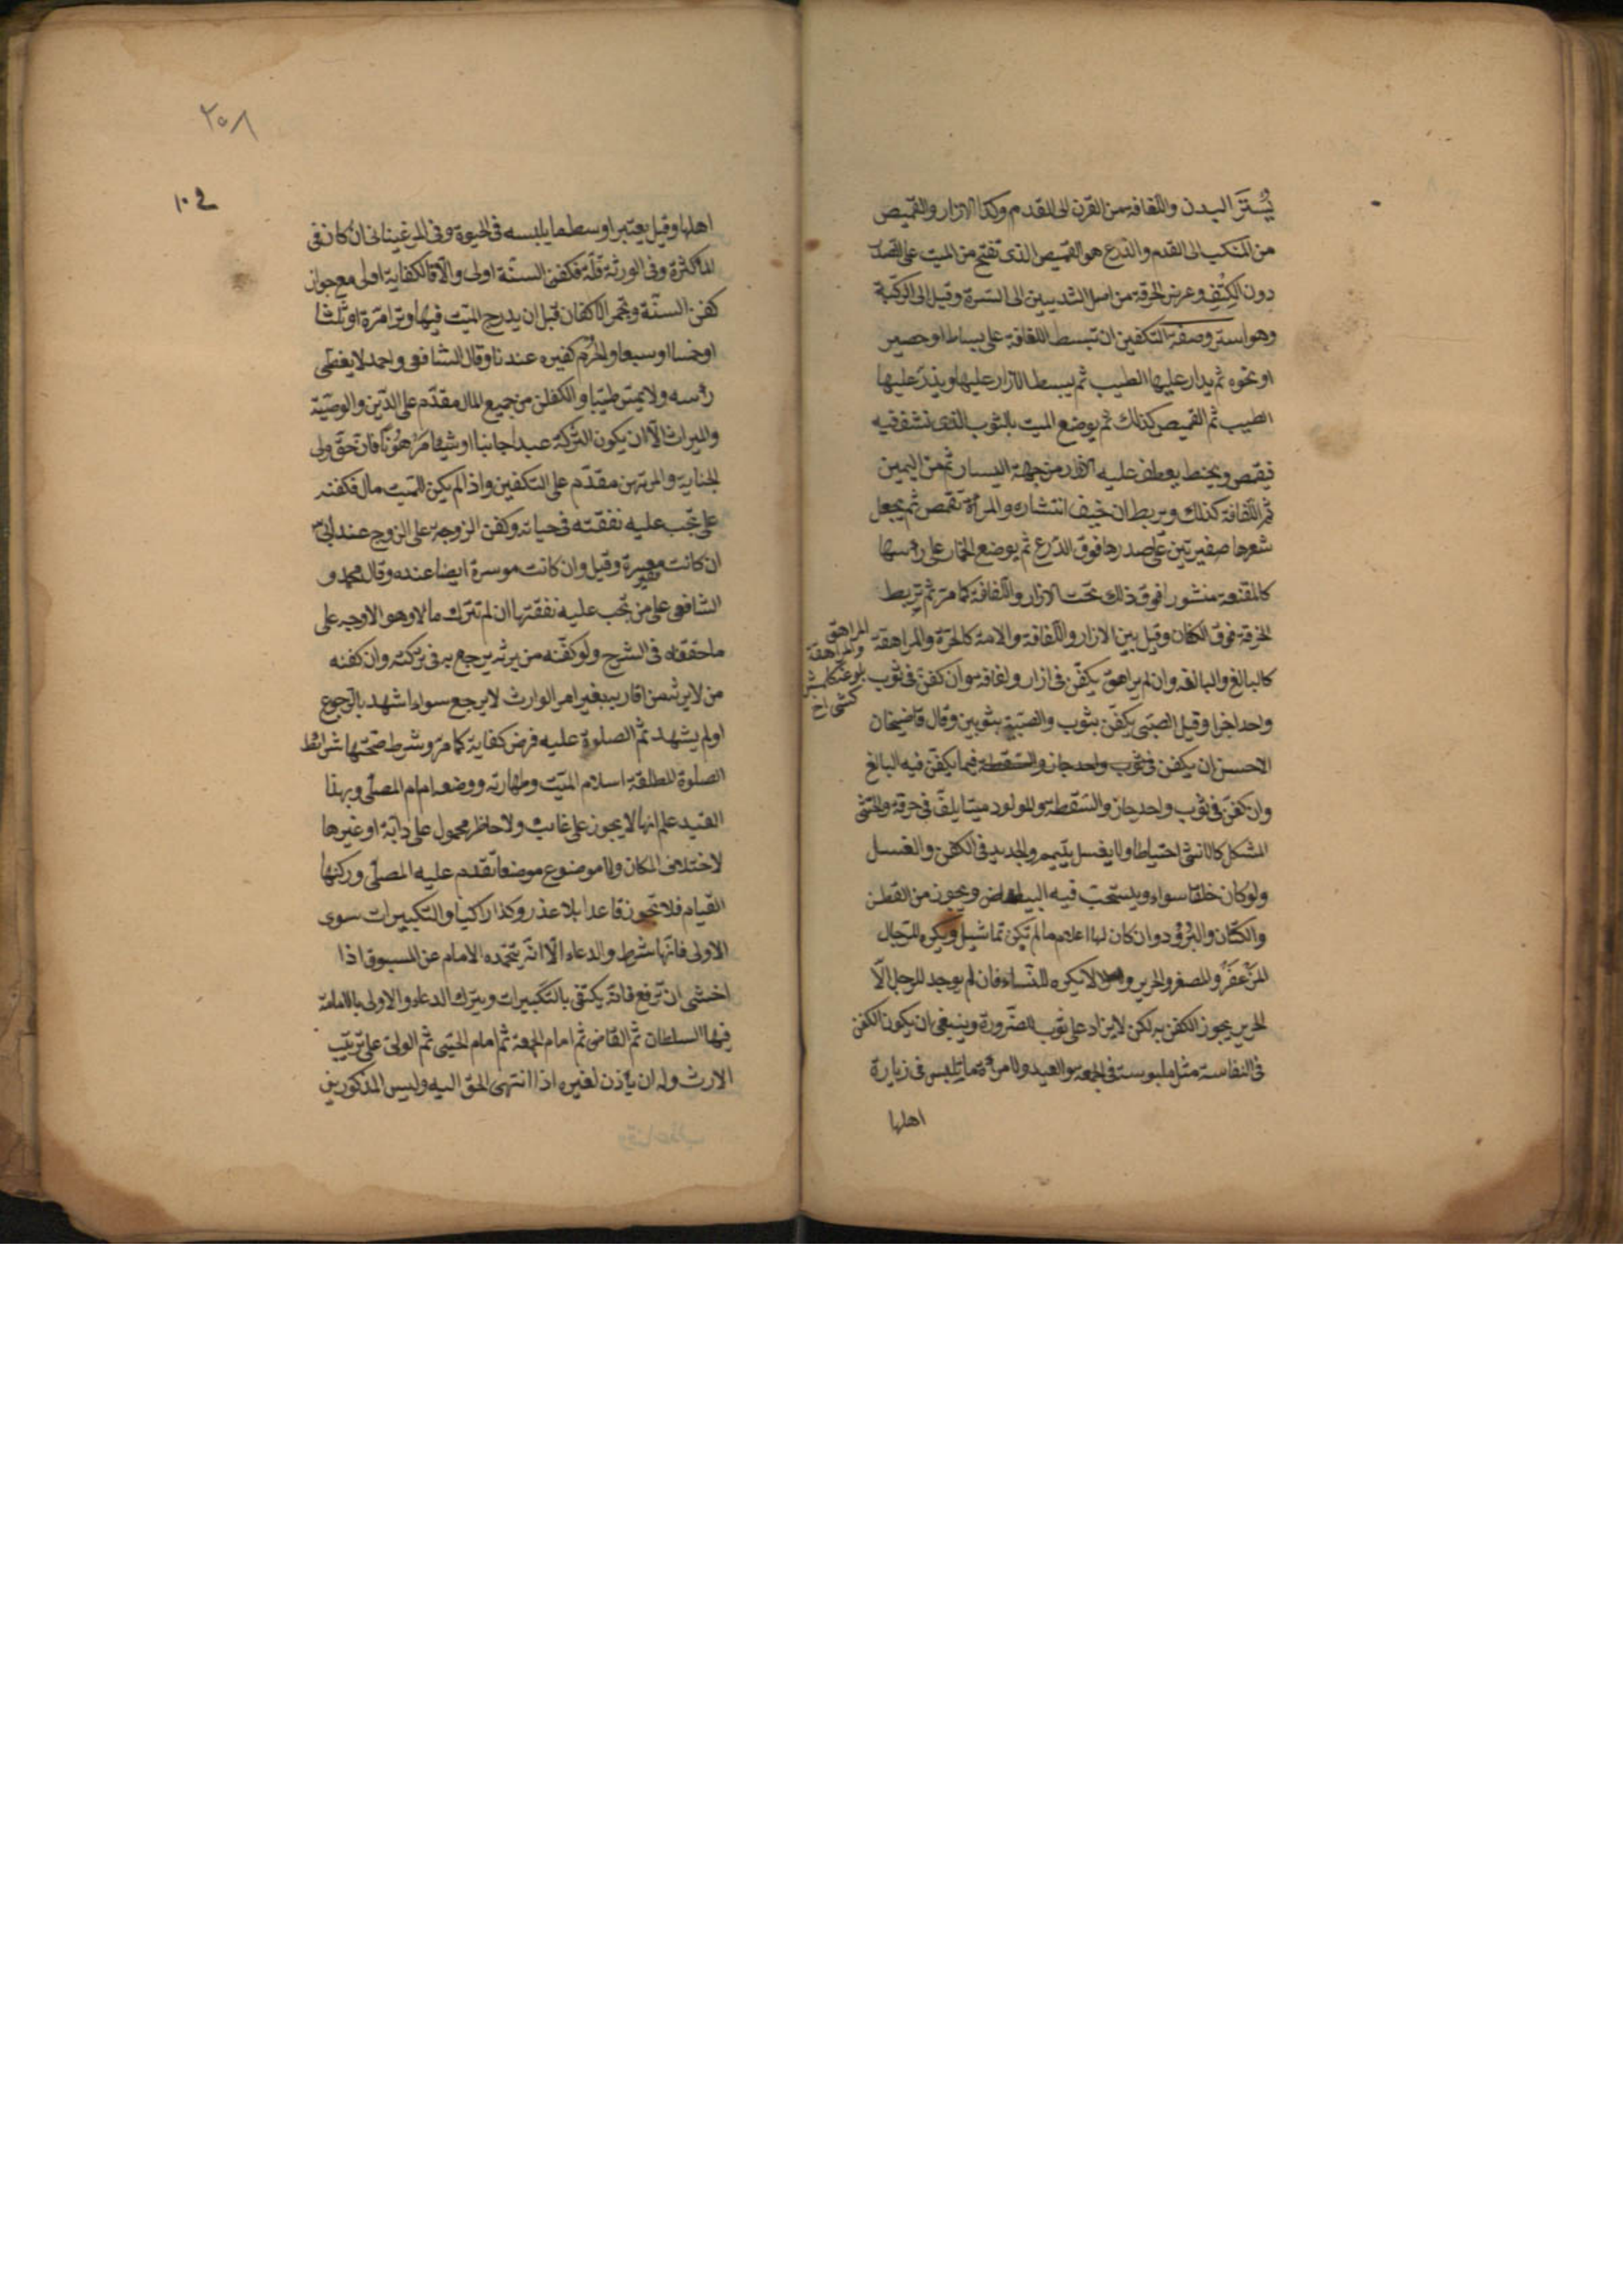 يُستَر البدن واللفافة من القرن الى القدم وكذا الازار والقميص
من المنكب الى القدم والدرع هو القميص الذى تفتح من الميت على الصدر
دون الكتِفِ وعرض الخرقة من اصل الثديين الى السرة وقيل الى الركبة
وهو استر وصفة التكفين ان تبسط اللفافة على بساط او حصير
او نحوه ثم يدار عليها الطيب ثم يبسط الازار عليها ويذرّ عليها
الطيب ثم القميص كذلك ثم يوضع الميت بالثوب الذى نشف فيه
فيقمص ويحنط يعطف عليه الازار من جهة اليسار ثم من اليمين
ثم اللفافة كذلك ويربط ان خيف انتشاره والمرأة تقمص ثم يجعل
شعرها ضفيرتين على صدرها فوق الدرع ثم يوضع الخمار على رءسها
كالمقنعة منشورا فوق ذلك تحت الازار واللفافة كما مر ثم تربط
الخرقة فوق الاكفان وقيل بين الازار واللفافة والامة كالحرة والمراهق والمراهقة
كالبالغ والبالغة وان لم يراهق يكفّن فى ازار ولفافة وان كفن فى ثوب
واحد اجزا وقيل الصبى يكفّن بثوب والصبية بثوبين وقال قاضيخان
الاحسن ان يكفن فيما يكفّن فيه البالغ
وان كفّن فى ثوب واحد جاز والسّقط والمولود ميتا يلفّ فى خرقة والخنثى
المشكل كالانثى احتياطا ولا يغسل يتيمم والجديد فى الكفن والغسل
ولو كان خلقا سواء ويستحب فيه البياض ويجوز من القطن
والكتّان والبُرود وان كان لها اعلام ما لم تكن تماثيل ويكره للرّجال
المزَعفَرُ والمعصفر والحرير ولا يكره للنّساء فان لم يوجد للرجل الّا
الحرير يجوز الكفن به لكن لا يزاد على ثوب للضّرورة وينبغى ان يكون الكفن
فى النفاسة مثل ملبوسه فى الجمعة والعيد والمرأة ما تلبس فى زيارة
اهلها
المراهق
والمراهقة
٢٥٨
١٠٤
اهلها وقيل يعتبر اوسط ما يلبسه فى الحيوة وفى المرغينانى ان كان فى
المال كثرة وفى الورثة قلّة فكفن السنّة اولى والّا فالكفاية اولى مع جواز
كفن السنّة وتجمر الاكفان قبل ان يدرج الميّت فيها وترا مرّة او ثلثا
او خمسا او سبعا والمُحرِم كغيره عندنا وقال الشافعى واحمد لا يغطّى
رءسه ولا يمسّ طيبا والكفن من جميع المال مقدّم على الدّين والوصيّة
والميراث الّا ان يكون التركة عبدا جانيا او شيئا مَرْهُونًا فان حقّ ولى
الجناية والمرتهن مقدّم على التكفين واذا لم يكن للميّت مال فكفنه
على من تجب عليه نفقته فى حياته وكفن الزوجة على الزوج عند ابى س
ان كانت معسرة وقيل وان كانت موسرة ايضا عنده وقال محمد و
الشافعى على من تجب عليه نفقتها ان لم تترك مالا وهو الاوجه على
ما حققناه فى الشرح ولو كفّنه من يرثه يرجع به فى تركته وان كفنه
من لا يرثه من اقاربه بغير امر الوارث لا يرجع سواء اشهد بالرّجوع
او لم يشهد ثم الصلوة عليه فرض كفاية كما مرّ وشرط صحّتها شرائط
الصلوة المطلقة اسلام الميّت وطهارته ووضعه امام المصلّى وبهذا
القيد علم انها لا يجوز على غائب ولا حاضر محمول على دابّة او غيرها
لاختلاف المكان ولا موضوع موضعا تقدم عليه المصلّى وركنها
القيام فلا تجوز قاعدا بلا عذر وكذا راكبا والتكبيرات سوى
الاولى فانّها شرط والدعاء الّا انّه يتحمّده الامام عن المسبوق اذا
اخشى ان ترفع فانّه يكتفى بالتكبيرات ويترك الدعاء والاولى بالامامة
فيها السلطان ثم القاضى ثم امام الجمعة ثم امام الحىّ ثم الولىّ على ترتيب
الارث وله ان يأذن لغيره اذا انتهى الحق اليه وليس المذكورين